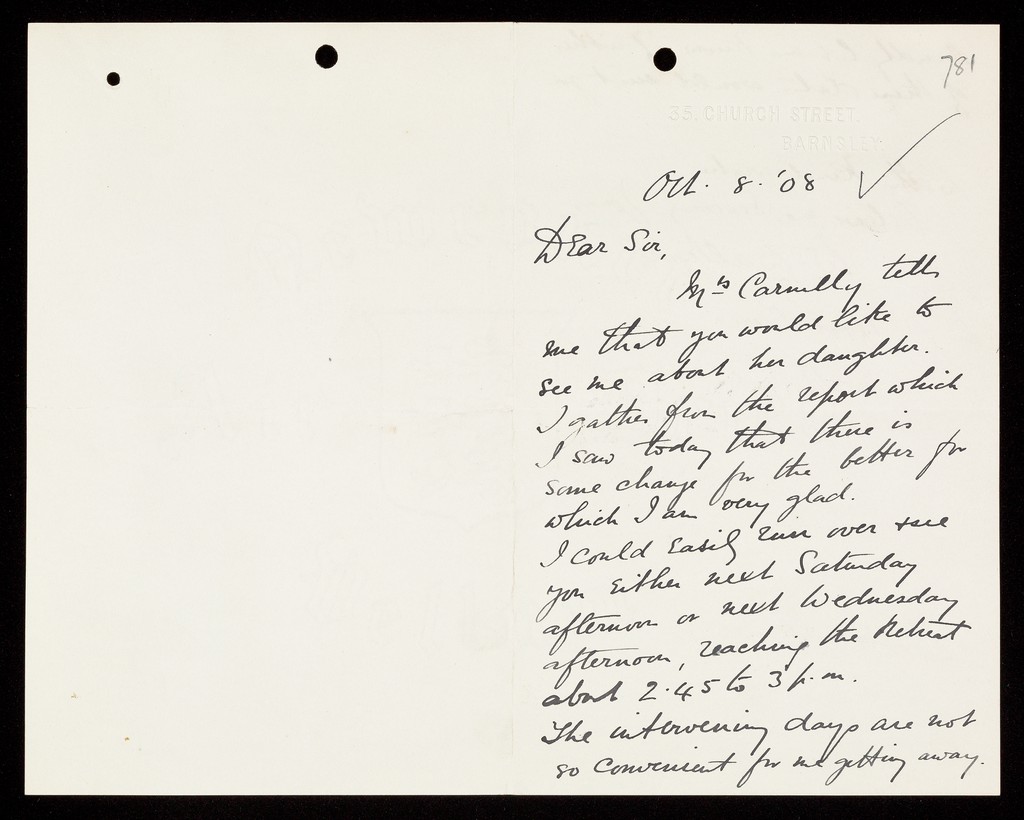 781
35, CHURCH STREET,
BARNSLEY.
Oct. 8. '08
Dear Sir,
Mrs Carnelly tells
me that you would like to
see me about her daughter.
I gather from the report which
I saw today that there is
some change for the better for
which I am very glad.
I could easily run over & see
you either next Saturday
afternoon or next Wednesday
afternoon, reaching the Retreat
about 2.45 to 3 p.m.
The intervening days are not
so convenient for me getting away.